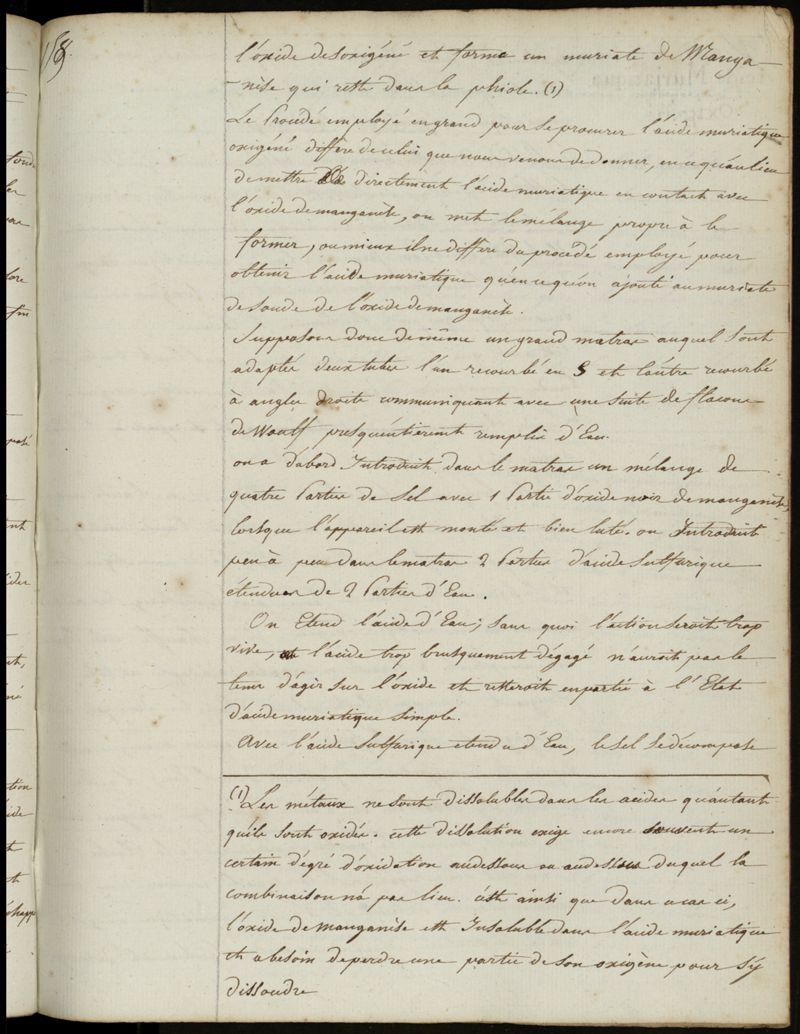 158.
l'oxide desoxigéné et forme un muriate de Manga-
-nèse qui reste dans la phiole. (1)
Le Procédé employé en grand pour se procurer l'acide muriatique
oxigéné differe de celui que nous venons de donner, en ce qu'au lieu
de mettre directement l'acide muriatique en contact avec
l'oxide de manganèse, on met le mélange propre à le
former, ou mieux il ne differe du procédé employé pour
obtenir l'acide muriatique qu'en ce qu'on ajoute au muriate
de soude de l'oxide de manganèse.
Supposons donc de même un grand matras auquel sont
adaptés deux tubes l'un recourbé en S et l'autre recourbé
à angles droits communiquant avec une suite de flacons
de Woulf presqu'entièrement remplis d'Eau.
on a d'abord Introduit dans le matras un mélange de
quatre Parties de Sel avec 1 Partie d'oxide noir de manganèse,
lorsque l'appareil est monté et bien luté. on Introduit
peu à peu dans le matras 2 Parties d'acide Sulfurique
étendues de 2 Parties d'Eau.
On Etend l'acide d'Eau; sans quoi l'action seroit trop
vive, et l'acide trop brusquement dégagé n'auroit pas le
tems d'agir sur l'oxide et resteroit en partie à l'Etat
d'acide muriatique simple.
Avec l'acide Sulfurique etendu d'Eau, le sel se décompose
(1) Les métaux ne sont dissolubles dans les acides qu'autant
qu'ils sont oxidés. cette dissolution exige encore souvent un
certain dégré d'oxidation audessous ou audessus duquel la
combinaison n'a pas lieu. c'est ainsi que dans ce cas ci,
l'oxide de manganèse est Insoluble dans l'acide muriatique
et a besoin de perdre une partie de son oxigène pour s'y
dissoudre